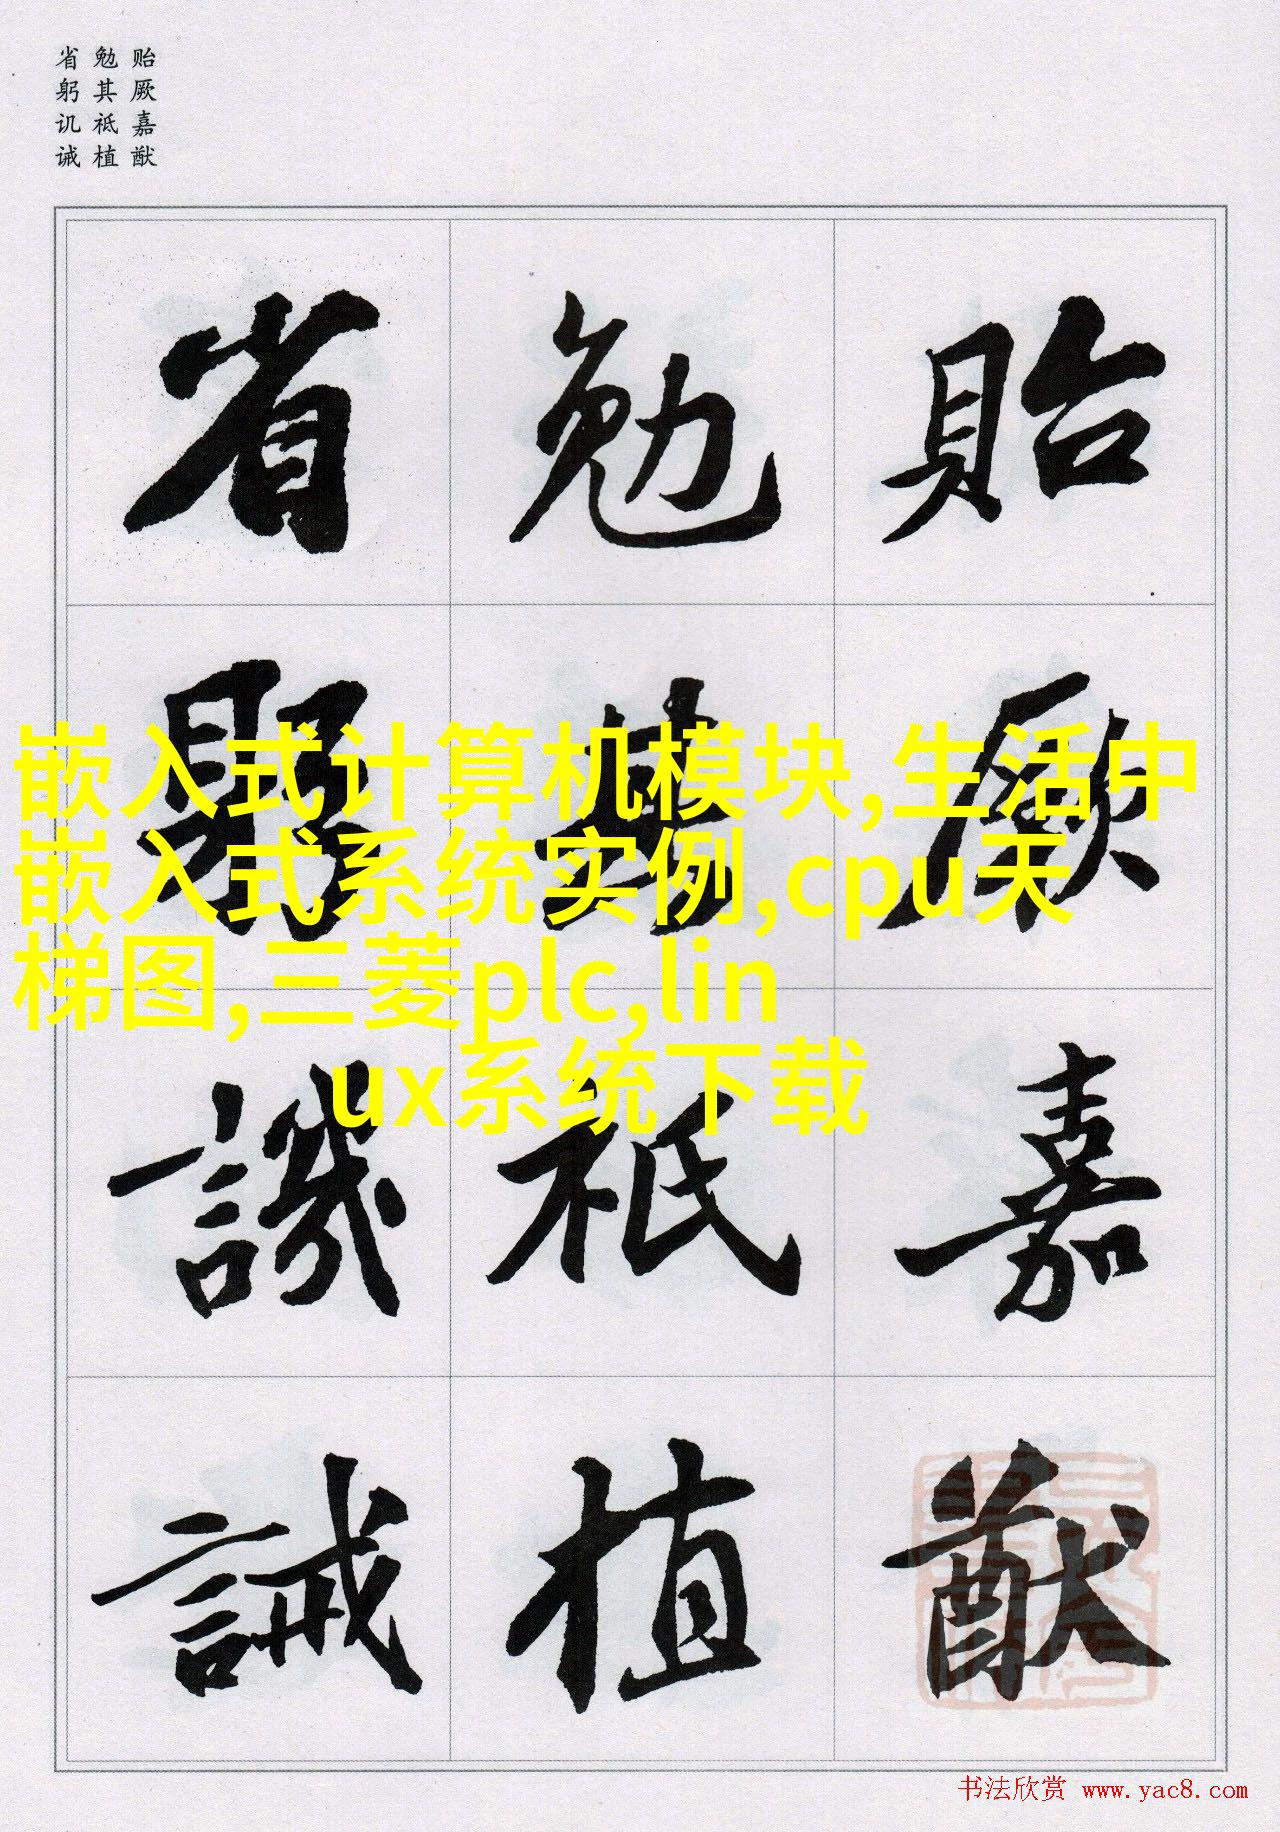 贻厥嘉猷
勉其祗植
省躬讥诫
貽厥嘉猷
勉其祗植
省躬譏誡
嵌入式计算机模块,生活中
嵌入式系统实例,cpu天
梯图,三菱plc,lin
ux系统下载
书法欣赏 www.yac8.com